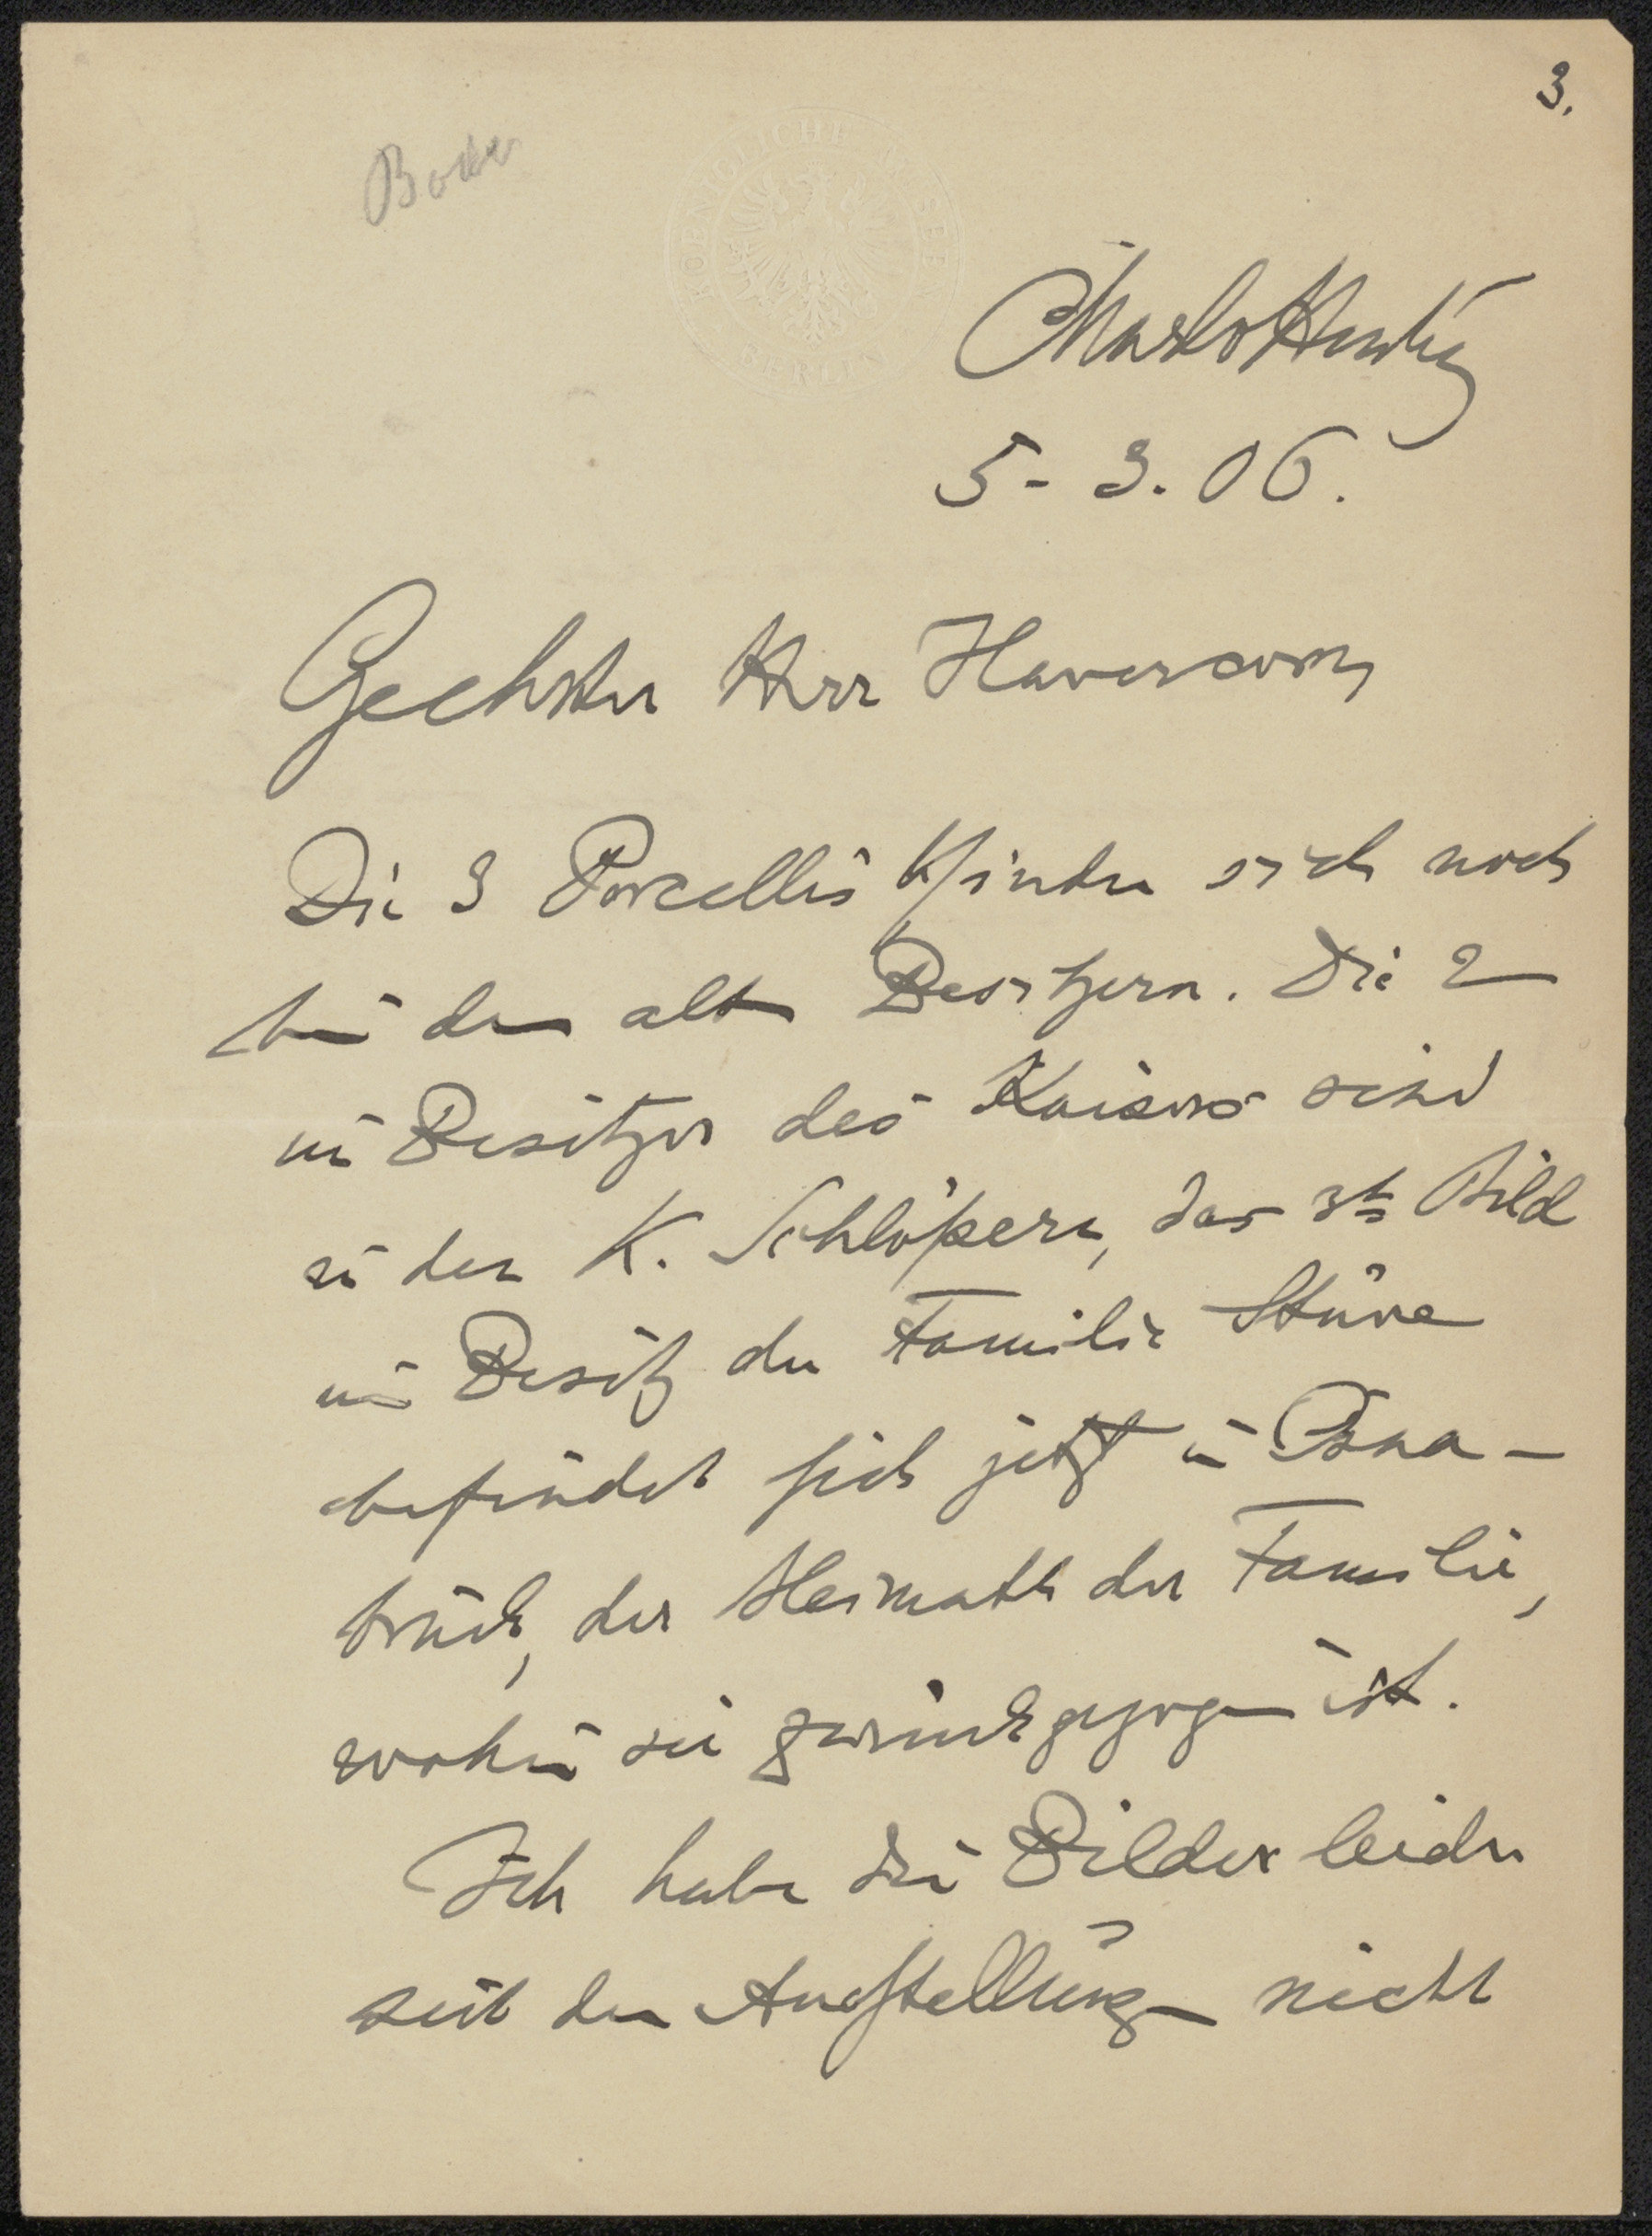 3.
Bode
KOENIGLICHE MUSEEN
BERLIN
Charlottenburg
5-3.06.
Geehrter Herr Havercorn,
Die 3 Porcellis finden sich noch
bei den alten Besitzern. Die 2
im Besitze des Kaisers sind
in den K. Schlößern, das 3te Bild
im Besitz der Familie Stüve
befindet sich jetzt in Osna-
brück, der Heimath der Familie,
wohin sie zurückgezogen ist.
Ich habe die Bilder leider
seit den Ausstellungen nicht